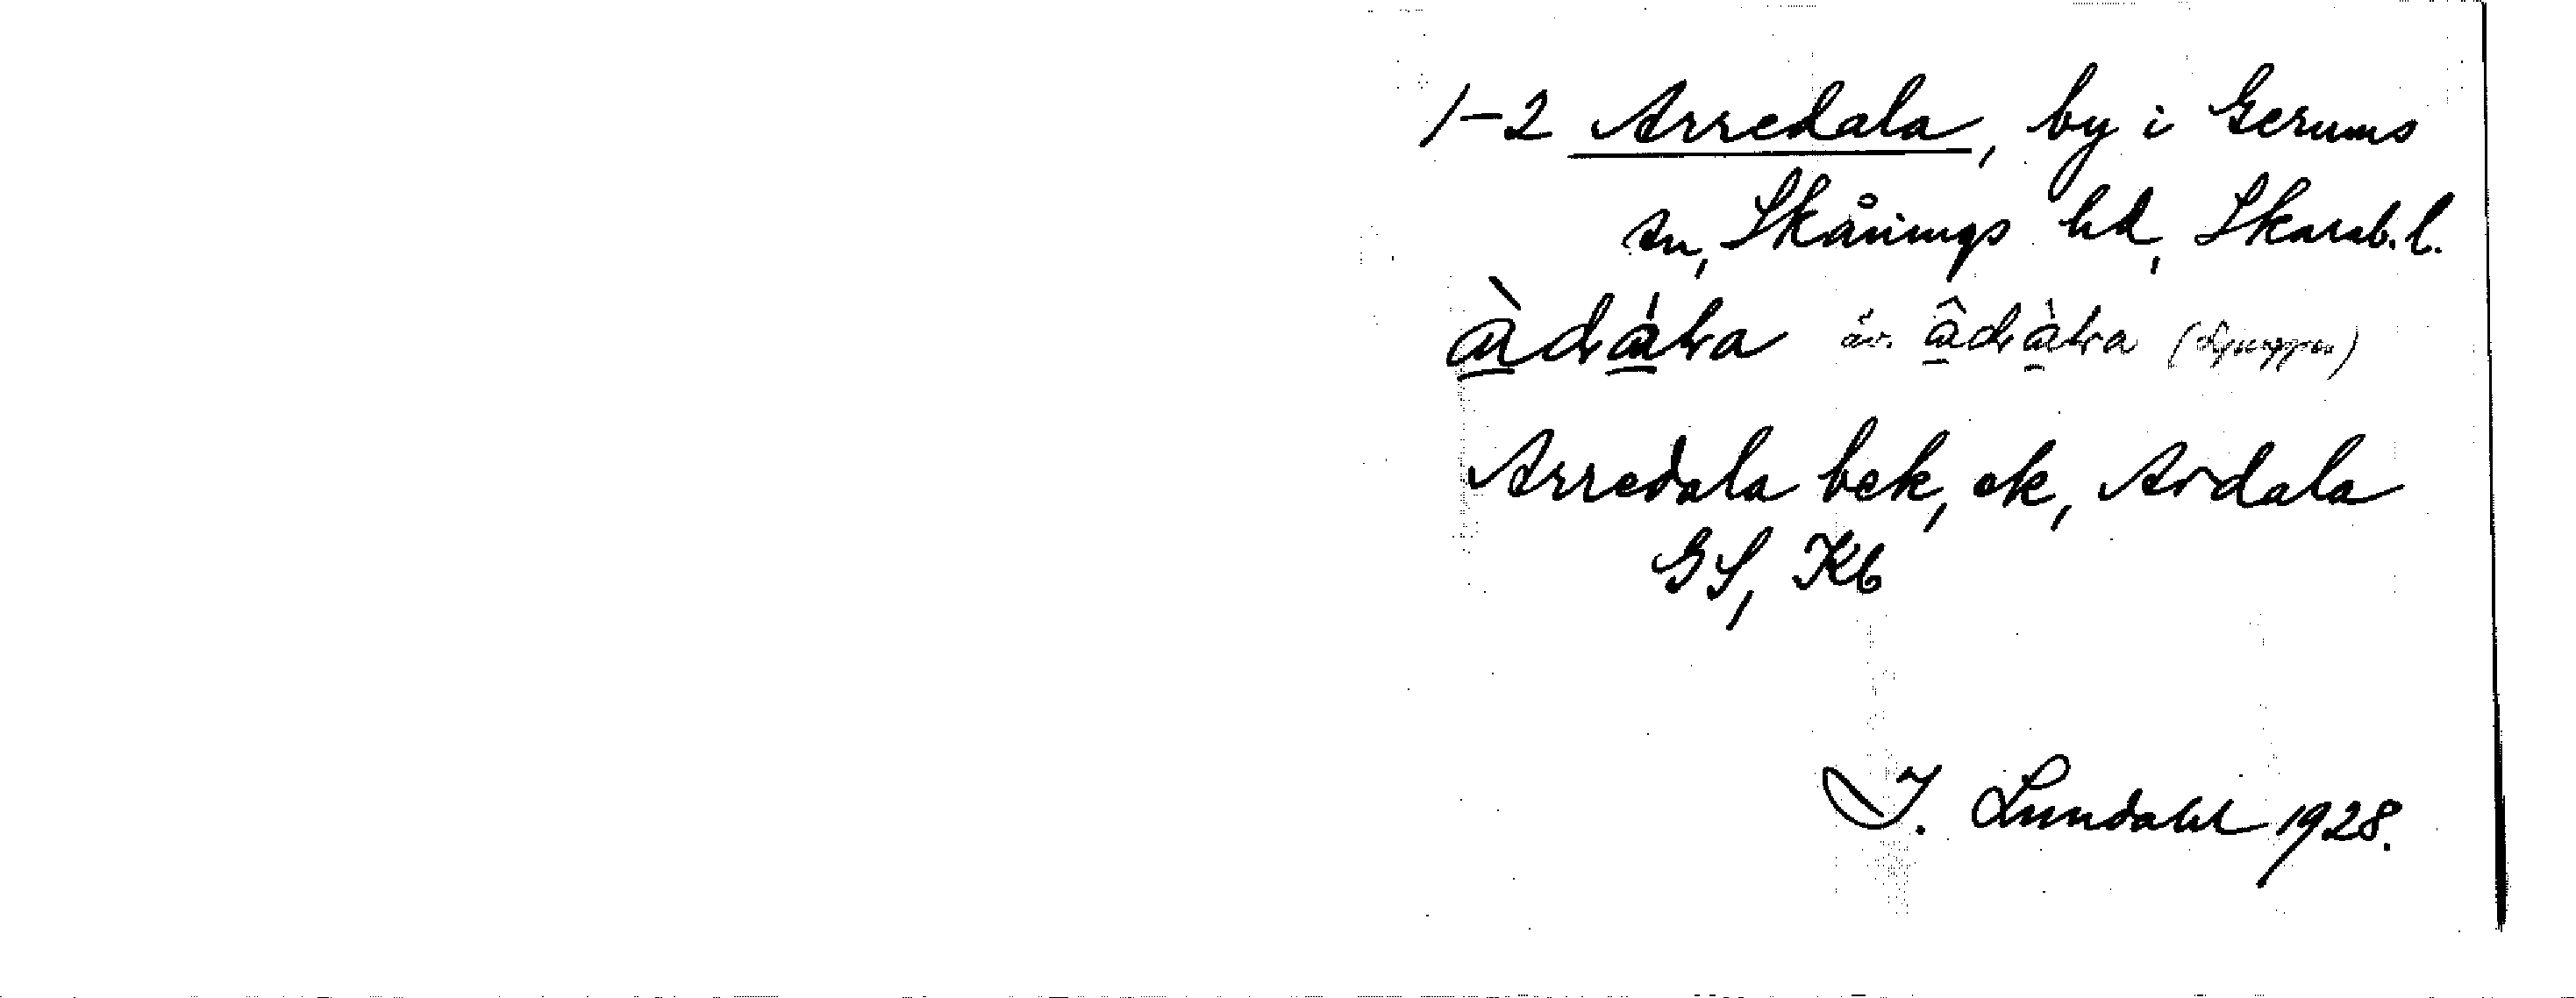 1-2 Arredala, by i Gerums
sn, Skånings hd, Skarab.l.
àdàla äv. âdàla
Arredala bek, ek, Ardala
GS, Kb
I. Lundahl 1928.